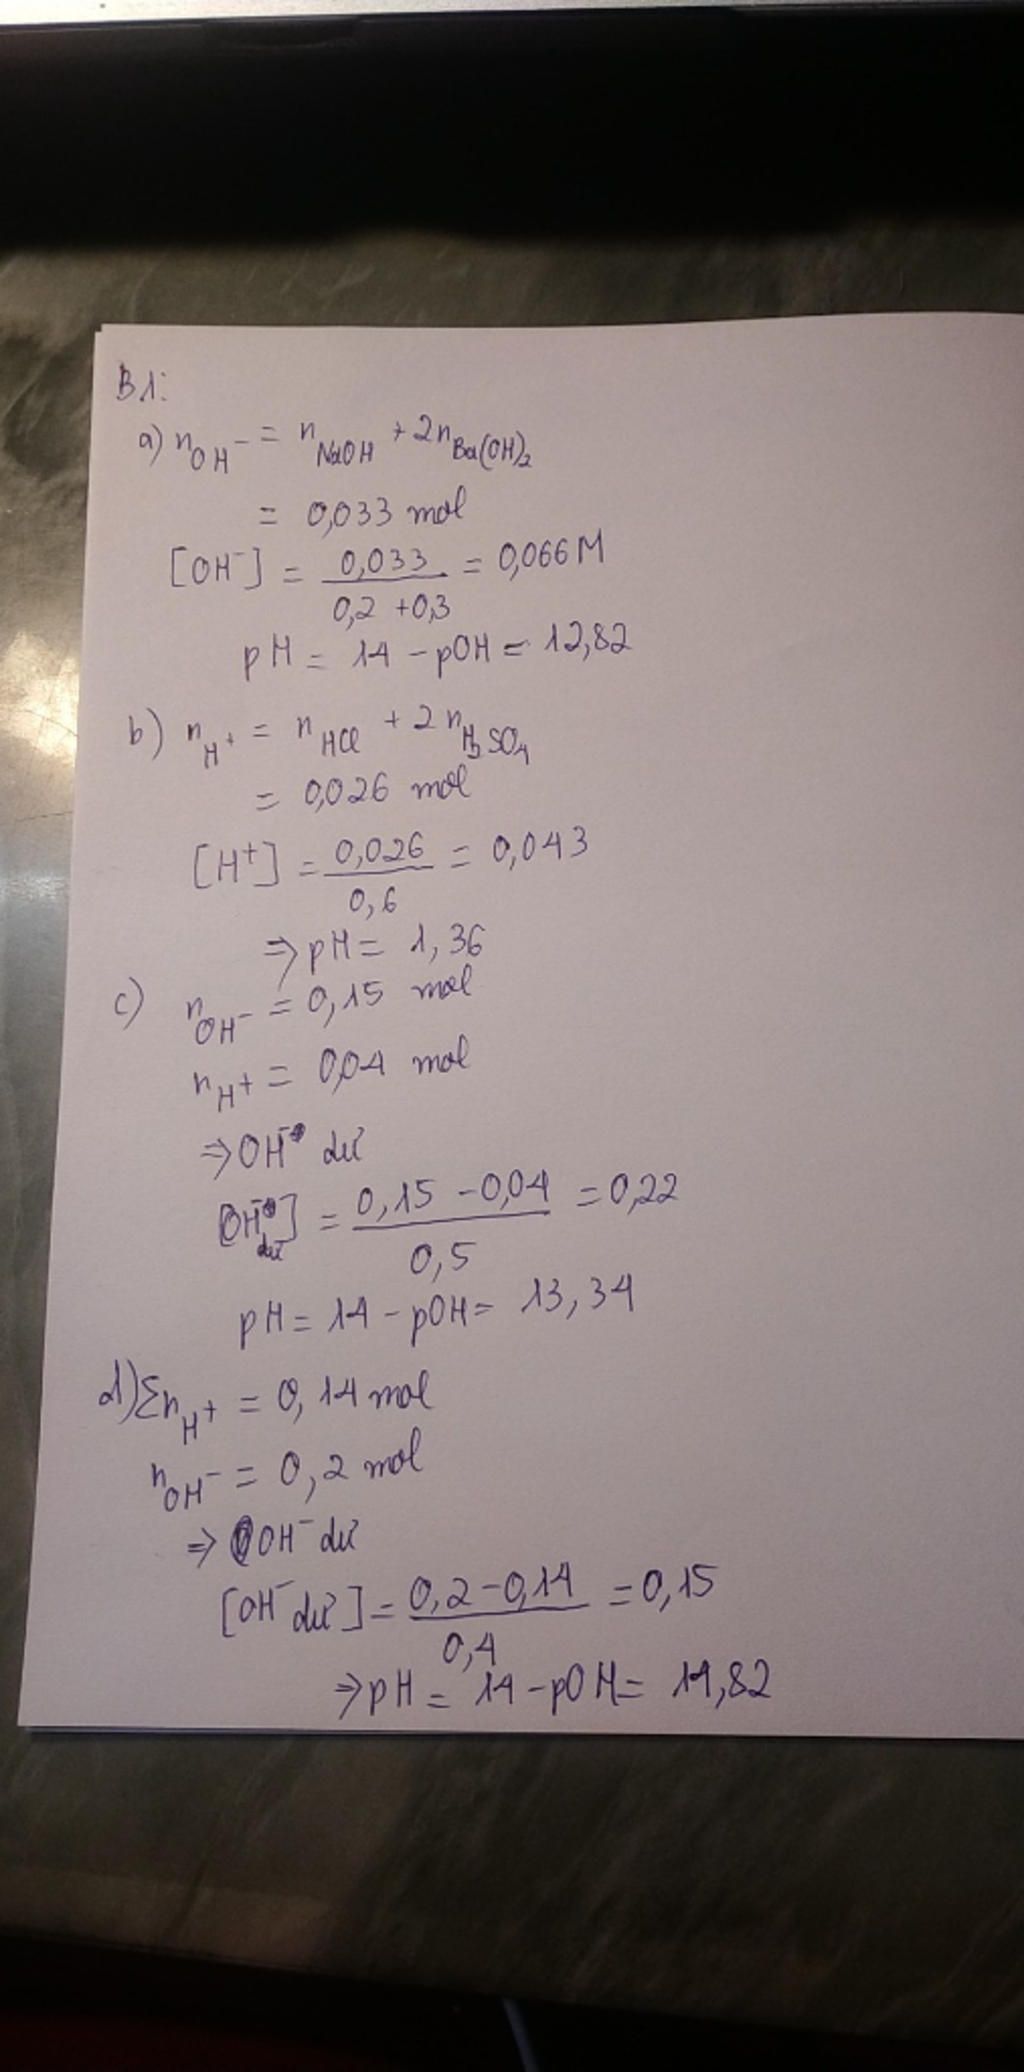 B1:
a) n_OH⁻ = n_NaOH + 2n_Ba(OH)₂
= 0,033 mol
[OH⁻] = 0,033 / 0,2 + 0,3 = 0,066 M
pH = 14 - pOH = 12,82
b) n_H⁺ = n_HCl + 2n_H₂SO₄
= 0,026 mol
[H⁺] = 0,026 / 0,6 = 0,043
⇒ pH = 1,36
c) n_OH⁻ = 0,15 mol
n_H⁺ = 0,04 mol
⇒ OH⁻ dư
[OH⁻ dư] = 0,15 - 0,04 / 0,5 = 0,22
pH = 14 - pOH = 13,34
d) Σn_H⁺ = 0,14 mol
n_OH⁻ = 0,2 mol
⇒ OH⁻ dư
[OH⁻ dư] = 0,2 - 0,14 / 0,4 = 0,15
⇒ pH = 14 - pOH = 14,82